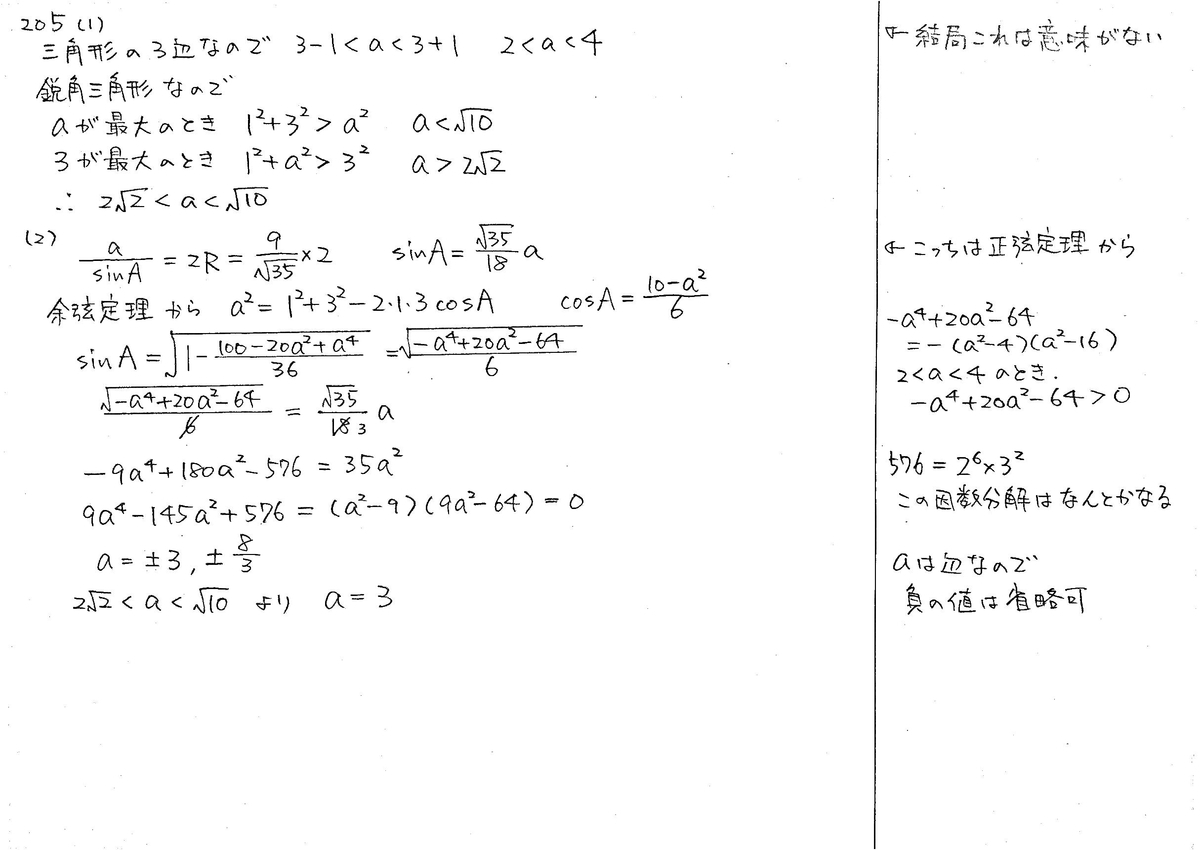 205 (1)
三角形の3辺なので 3-1<a<3+1 2<a<4
鋭角三角形なので
aが最大のとき 1²+3²>a² a<√10
3が最大のとき 1²+a²>3² a>2√2
∴ 2√2<a<√10
(2) a/sinA = 2R = 9/√35 ×2 sinA = √35/18 a
余弦定理から a²=1²+3²-2・1・3cosA cosA = (10-a²)/6
sinA = √(1-(100-20a²+a⁴)/36) = √(-a⁴+20a²-64)/6
√(-a⁴+20a²-64)/6 = √35/18 3 a
-9a⁴+180a²-576 = 35a²
9a⁴-145a²+576 = (a²-9)(9a²-64) = 0
a = ±3, ±8/3
2√2<a<√10 より a = 3
← 結局これは意味がない
← こっちは正弦定理から
-a⁴+20a²-64
= -(a²-4)(a²-16)
2<a<4のとき.
-a⁴+20a²-64>0
576 = 2⁶×3²
この因数分解はなんとかなる
aは辺なので
負の値は省略可